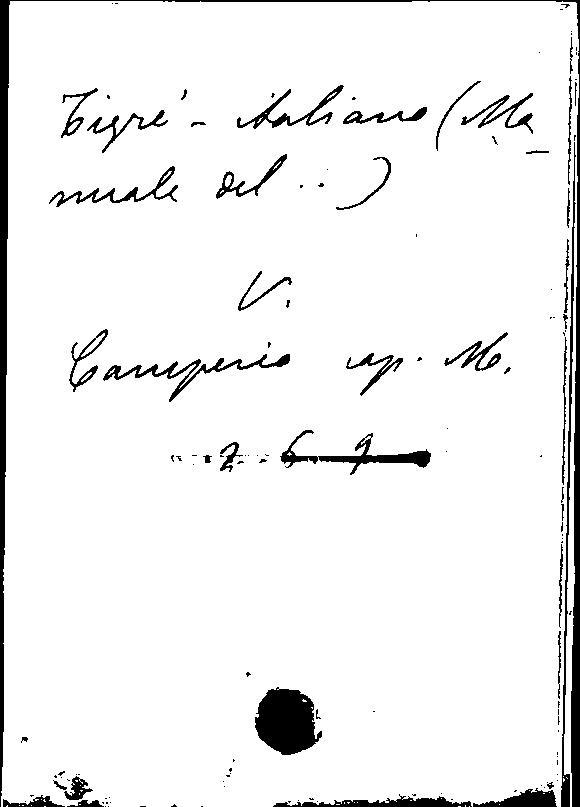 Tigré - italiano (Ma_
nuale del ..)
V.
Camperio cap. M.
2 6 9